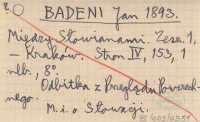 BADENI Jan 1893.
Między Słowianami. Zesz. 1,
– Kraków. Stron IV, 153, 1
nlb., 8°
Odbitka z Przeglądu Powszech-
nego
M. i. o Słowacji.